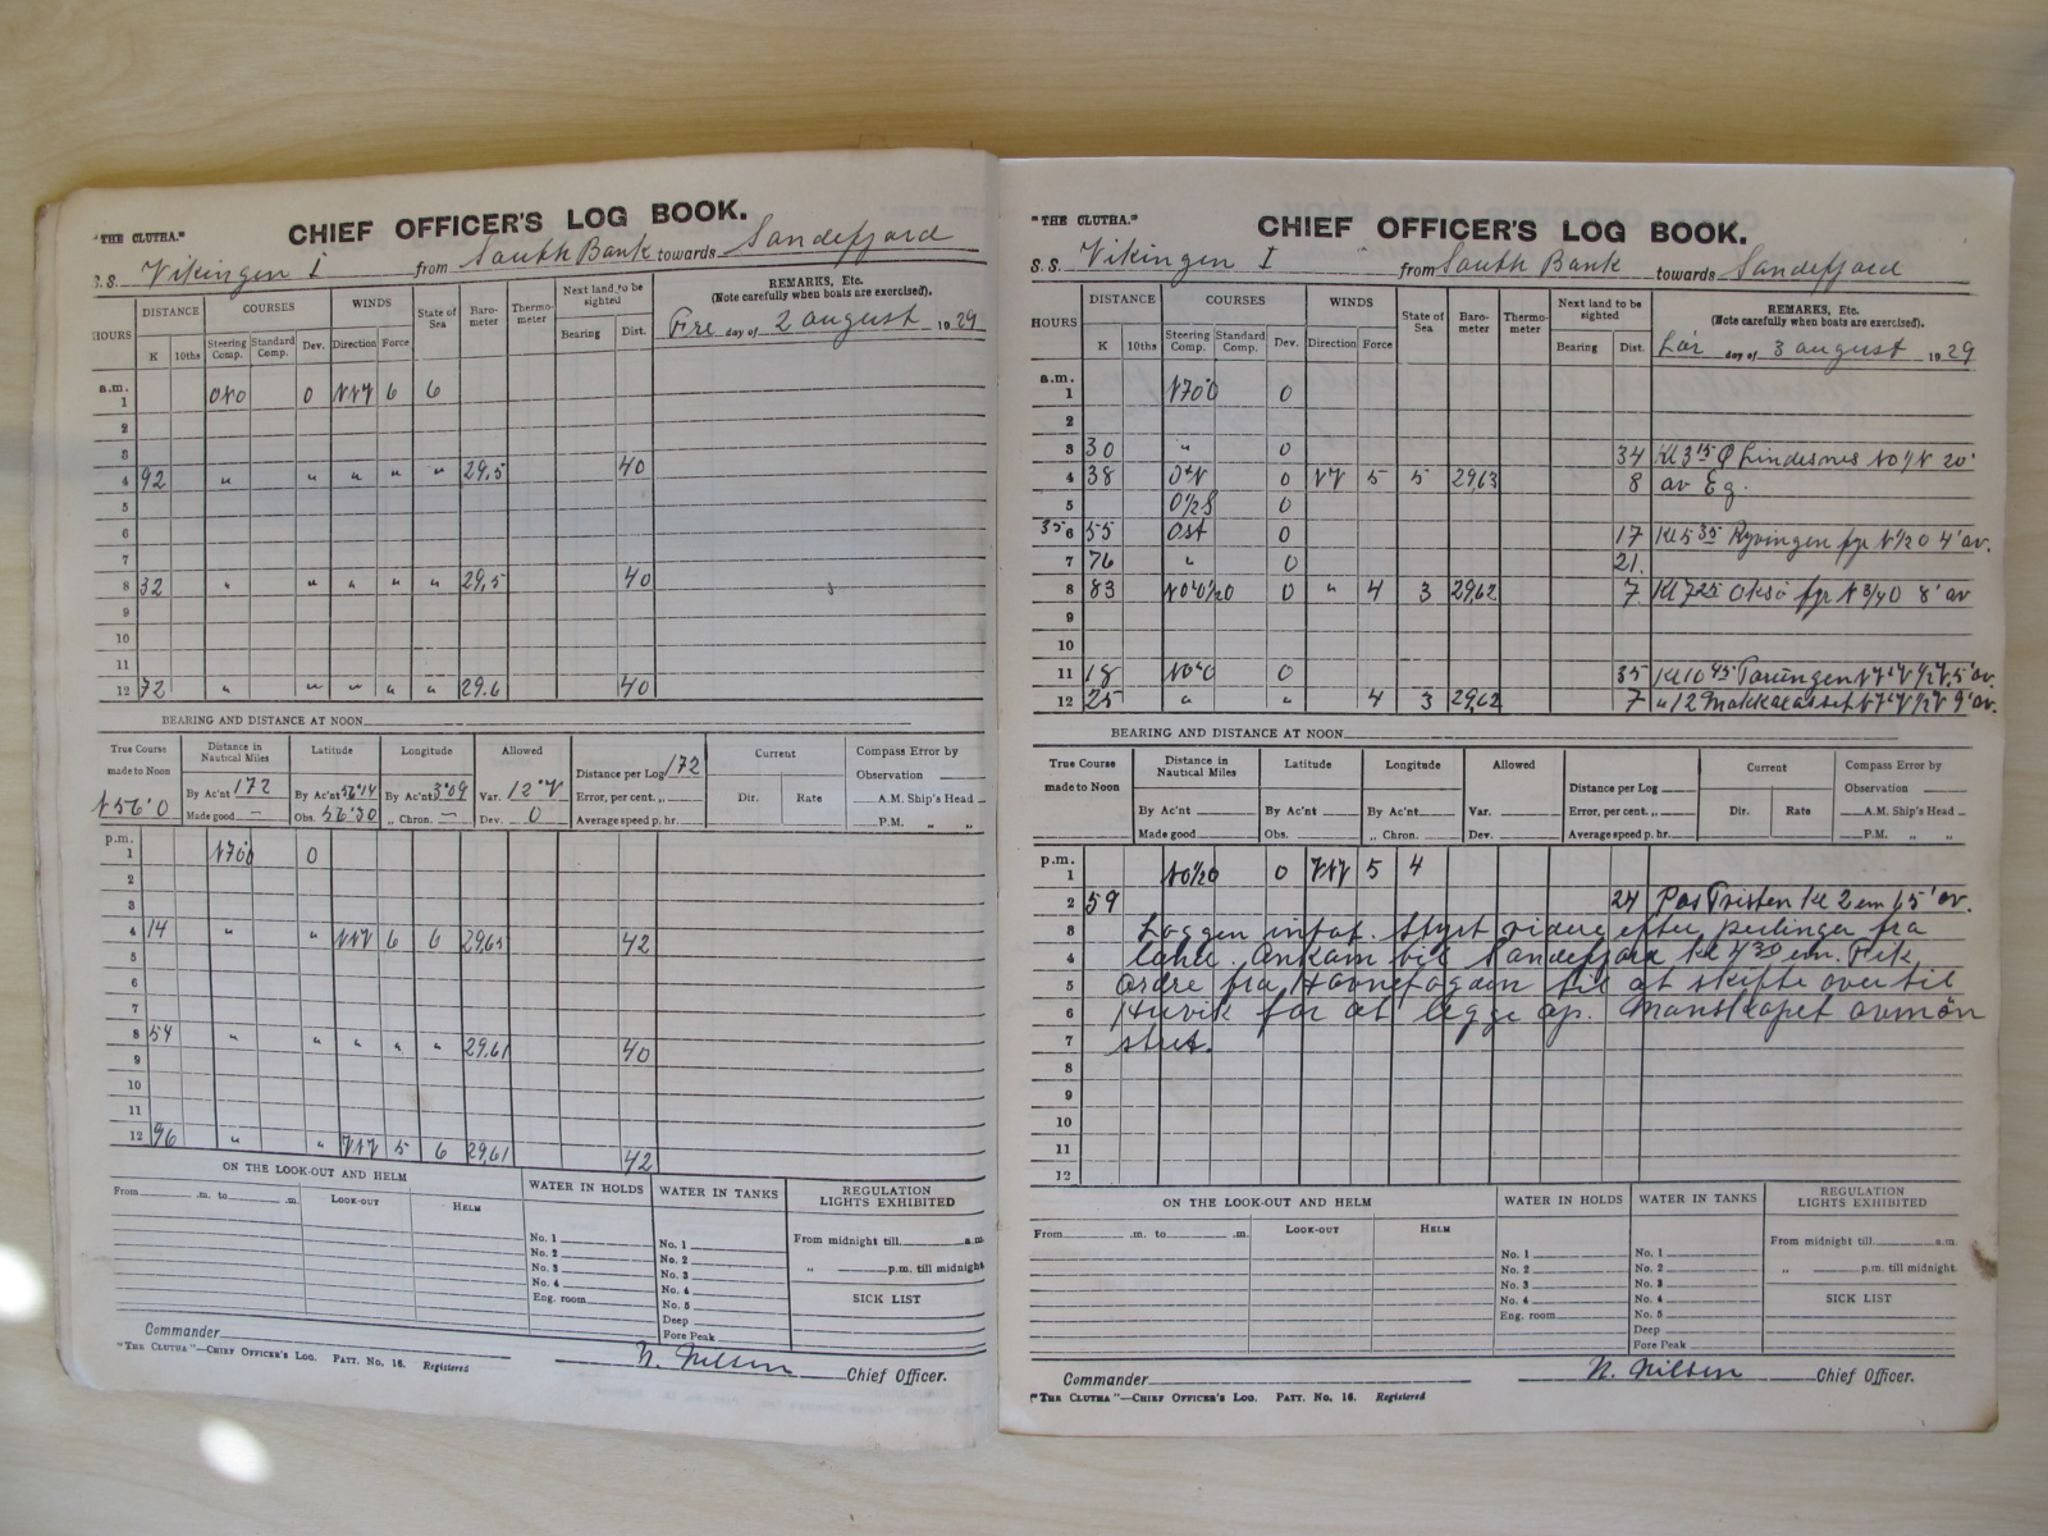 "THE CLUTHA."
CHIEF OFFICER'S LOG BOOK.
S.S. Vikingen I from South Bank towards Sandefjord
HOURS DISTANCE COURSES WINDS State of Sea Barometer Thermometer Next land to be sighted REMARKS, Etc.
(Note carefully when boats are exercised).
K 10ths Steering Comp. Standard Comp. Dev. Direction Force Bearing Dist. Fre day of 2 august 1929
a.m.
1 ONO 0 NNV 6 6
2
3
4 92 " " " " " 29,5 40
5
6
7
8 32 " " " " " 29,5 40
9
10
11
12 72 " " " " " 29.6 40
BEARING AND DISTANCE AT NOON
True Course made to Noon Distance in Nautical Miles Latitude Longitude Allowed Distance per Log 172 Current Compass Error by
Observation
N56°O By Ac'nt 172 By Ac'nt 56°14 By Ac'nt 3°09 Var. 12°V Error, per cent. „ Dir. Rate A.M. Ship's Head
Made good — Obs. 56°30 „ Chron. — Dev. 0 Average speed p. hr. P.M. „ „
p.m.
1 N70O 0
2
3
4 14 " " NNV 6 6 29,65 42
5
6
7
8 54 " " " " " 29,61 40
9
10
11
12 96 " " VNV 5 6 29,61 42
ON THE LOOK-OUT AND HELM WATER IN HOLDS WATER IN TANKS REGULATION LIGHTS EXHIBITED
From .m. to .m. LOOK-OUT HELM
No. 1 No. 1 From midnight till a.m.
No. 2 No. 2
No. 3 No. 3 „ p.m. till midnight
No. 4 No. 4
Eng. room No. 5 SICK LIST
Deep
Fore Peak
Commander N. Nilsen Chief Officer.
"THE CLUTHA"—CHIEF OFFICER'S LOG. PATT. No. 16. Registered
"THE CLUTHA."
CHIEF OFFICER'S LOG BOOK.
S.S. Vikingen I from South Bank towards Sandefjord
HOURS DISTANCE COURSES WINDS State of Sea Barometer Thermometer Next land to be sighted REMARKS, Etc.
(Note carefully when boats are exercised).
K 10ths Steering Comp. Standard Comp. Dev. Direction Force Bearing Dist. Lör day of 3 august 1929
a.m.
1 N70°O 0
2
3 30 " 0 34 Kl 3 15 Lindesnes NO 20'
4 38 0 NV 5 5 29,63 8 av Eg.
5 O½S 0
35 6 55 Ost 0 17 Kl 5 35 Ryvingen fyr N½O 4' av.
7 76 " 0 21.
8 83 0 " 4 3 29,62 7 Kl 7 25 Oksö fyr N 3/4 O 8' av
9
10
11 18 0 35 Kl 10 45 5' av.
12 25 " " 4 3 29,62 7 " 12 9' av.
BEARING AND DISTANCE AT NOON
True Course made to Noon Distance in Nautical Miles Latitude Longitude Allowed Distance per Log Current Compass Error by
Observation
By Ac'nt By Ac'nt By Ac'nt Var. Error, per cent. „ Dir. Rate A.M. Ship's Head
Made good Obs. „ Chron. Dev. Average speed p. hr. P.M. „ „
p.m.
1 NO½O 0 VNV 5 4
2 59 24 Pas Tristen kl 2 em 1,5' av.
3 Loggen intat. Styrt videre efter peilinger fra
4 land. Ankom til Sandefjord kl 4 30 em. Fik
5 ordre fra Havnefogden til at skifte over til
6 Huvik for at legge op. Manskapet avmön
7 stret.
8
9
10
11
12
ON THE LOOK-OUT AND HELM WATER IN HOLDS WATER IN TANKS REGULATION LIGHTS EXHIBITED
From .m. to .m. LOOK-OUT HELM
No. 1 No. 1 From midnight till a.m.
No. 2 No. 2 „ p.m. till midnight
No. 3 No. 3
No. 4 No. 4 SICK LIST
Eng. room No. 5
Deep
Fore Peak
Commander N. Nilsen Chief Officer.
"THE CLUTHA"—CHIEF OFFICER'S LOG. PATT. No. 16. Registered